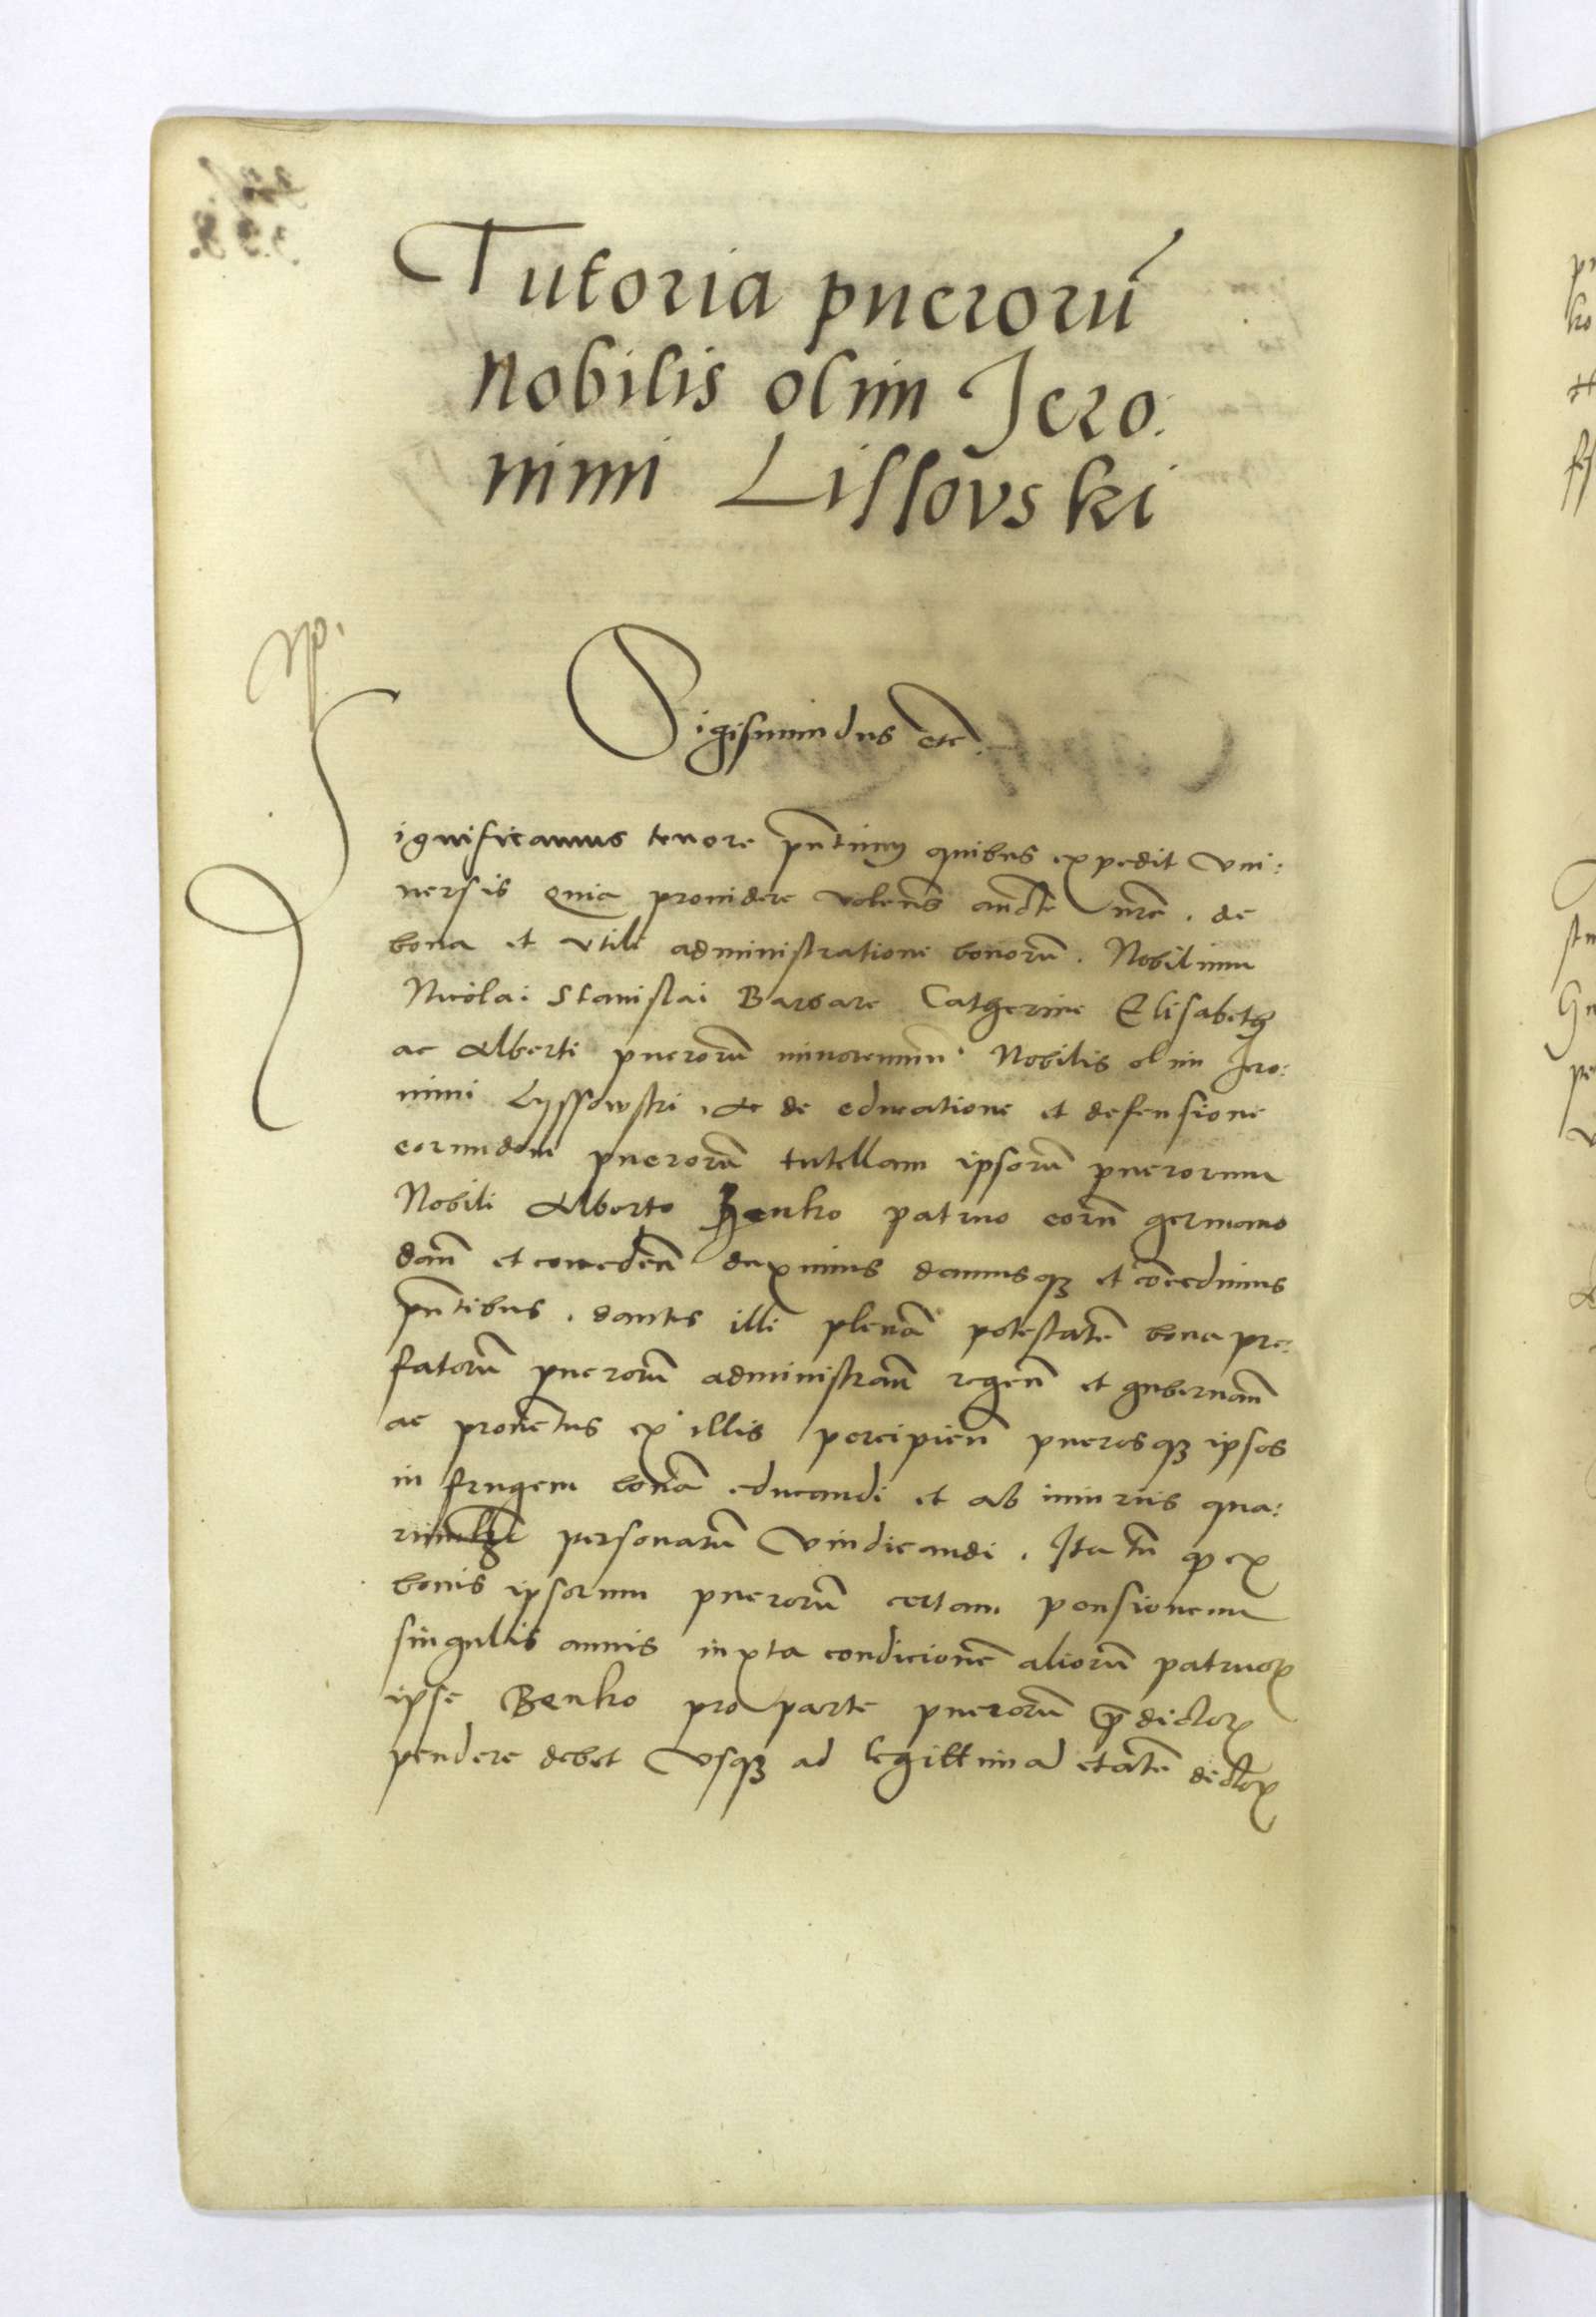 Tutoria puerorū
nobilis olim Jero:
nimi Lissovski
Sigismundus etc.
Significamus tenore pn̄tium quibus expedit Vni:
uersis Quia prouidere volens auctē nr̄e . de
bona et vtili administratione bonorū . Nobilium
Nicolai Stanislai Barbare Catherine Elisabeth
ac Alberti puerorū minorennium Nobilis olim Jero:
nimi Lyssowski . Ac de educatione et defensione
eorundem puerorū tutellam ipsorū puerorum
Nobili Alberto Benko patruo eorū germano
dan̄ et conceden̄ duximus damusqȝ et cōcedimus
pn̄tibus . dantes illi plenā potestatē bona pre:
fatorū puerorū administran̄ regen̄ et gubernan̄
ac prouētus ex illis percipien̄ puerosqȝ ipsos
in frugem bonā educandi et ab iniuriis qua:
personarū Vindicandi . Ita tn̄ ꝙ ex
bonis ipsorum puerorū certam pensionem
singullis annis iuxta condicionē aliorū patruoꝝ
ipse Benko pro parte puerorū p̄dictoꝝ
pendere debet Vsqȝ ad legittimā etatē dictoꝝ